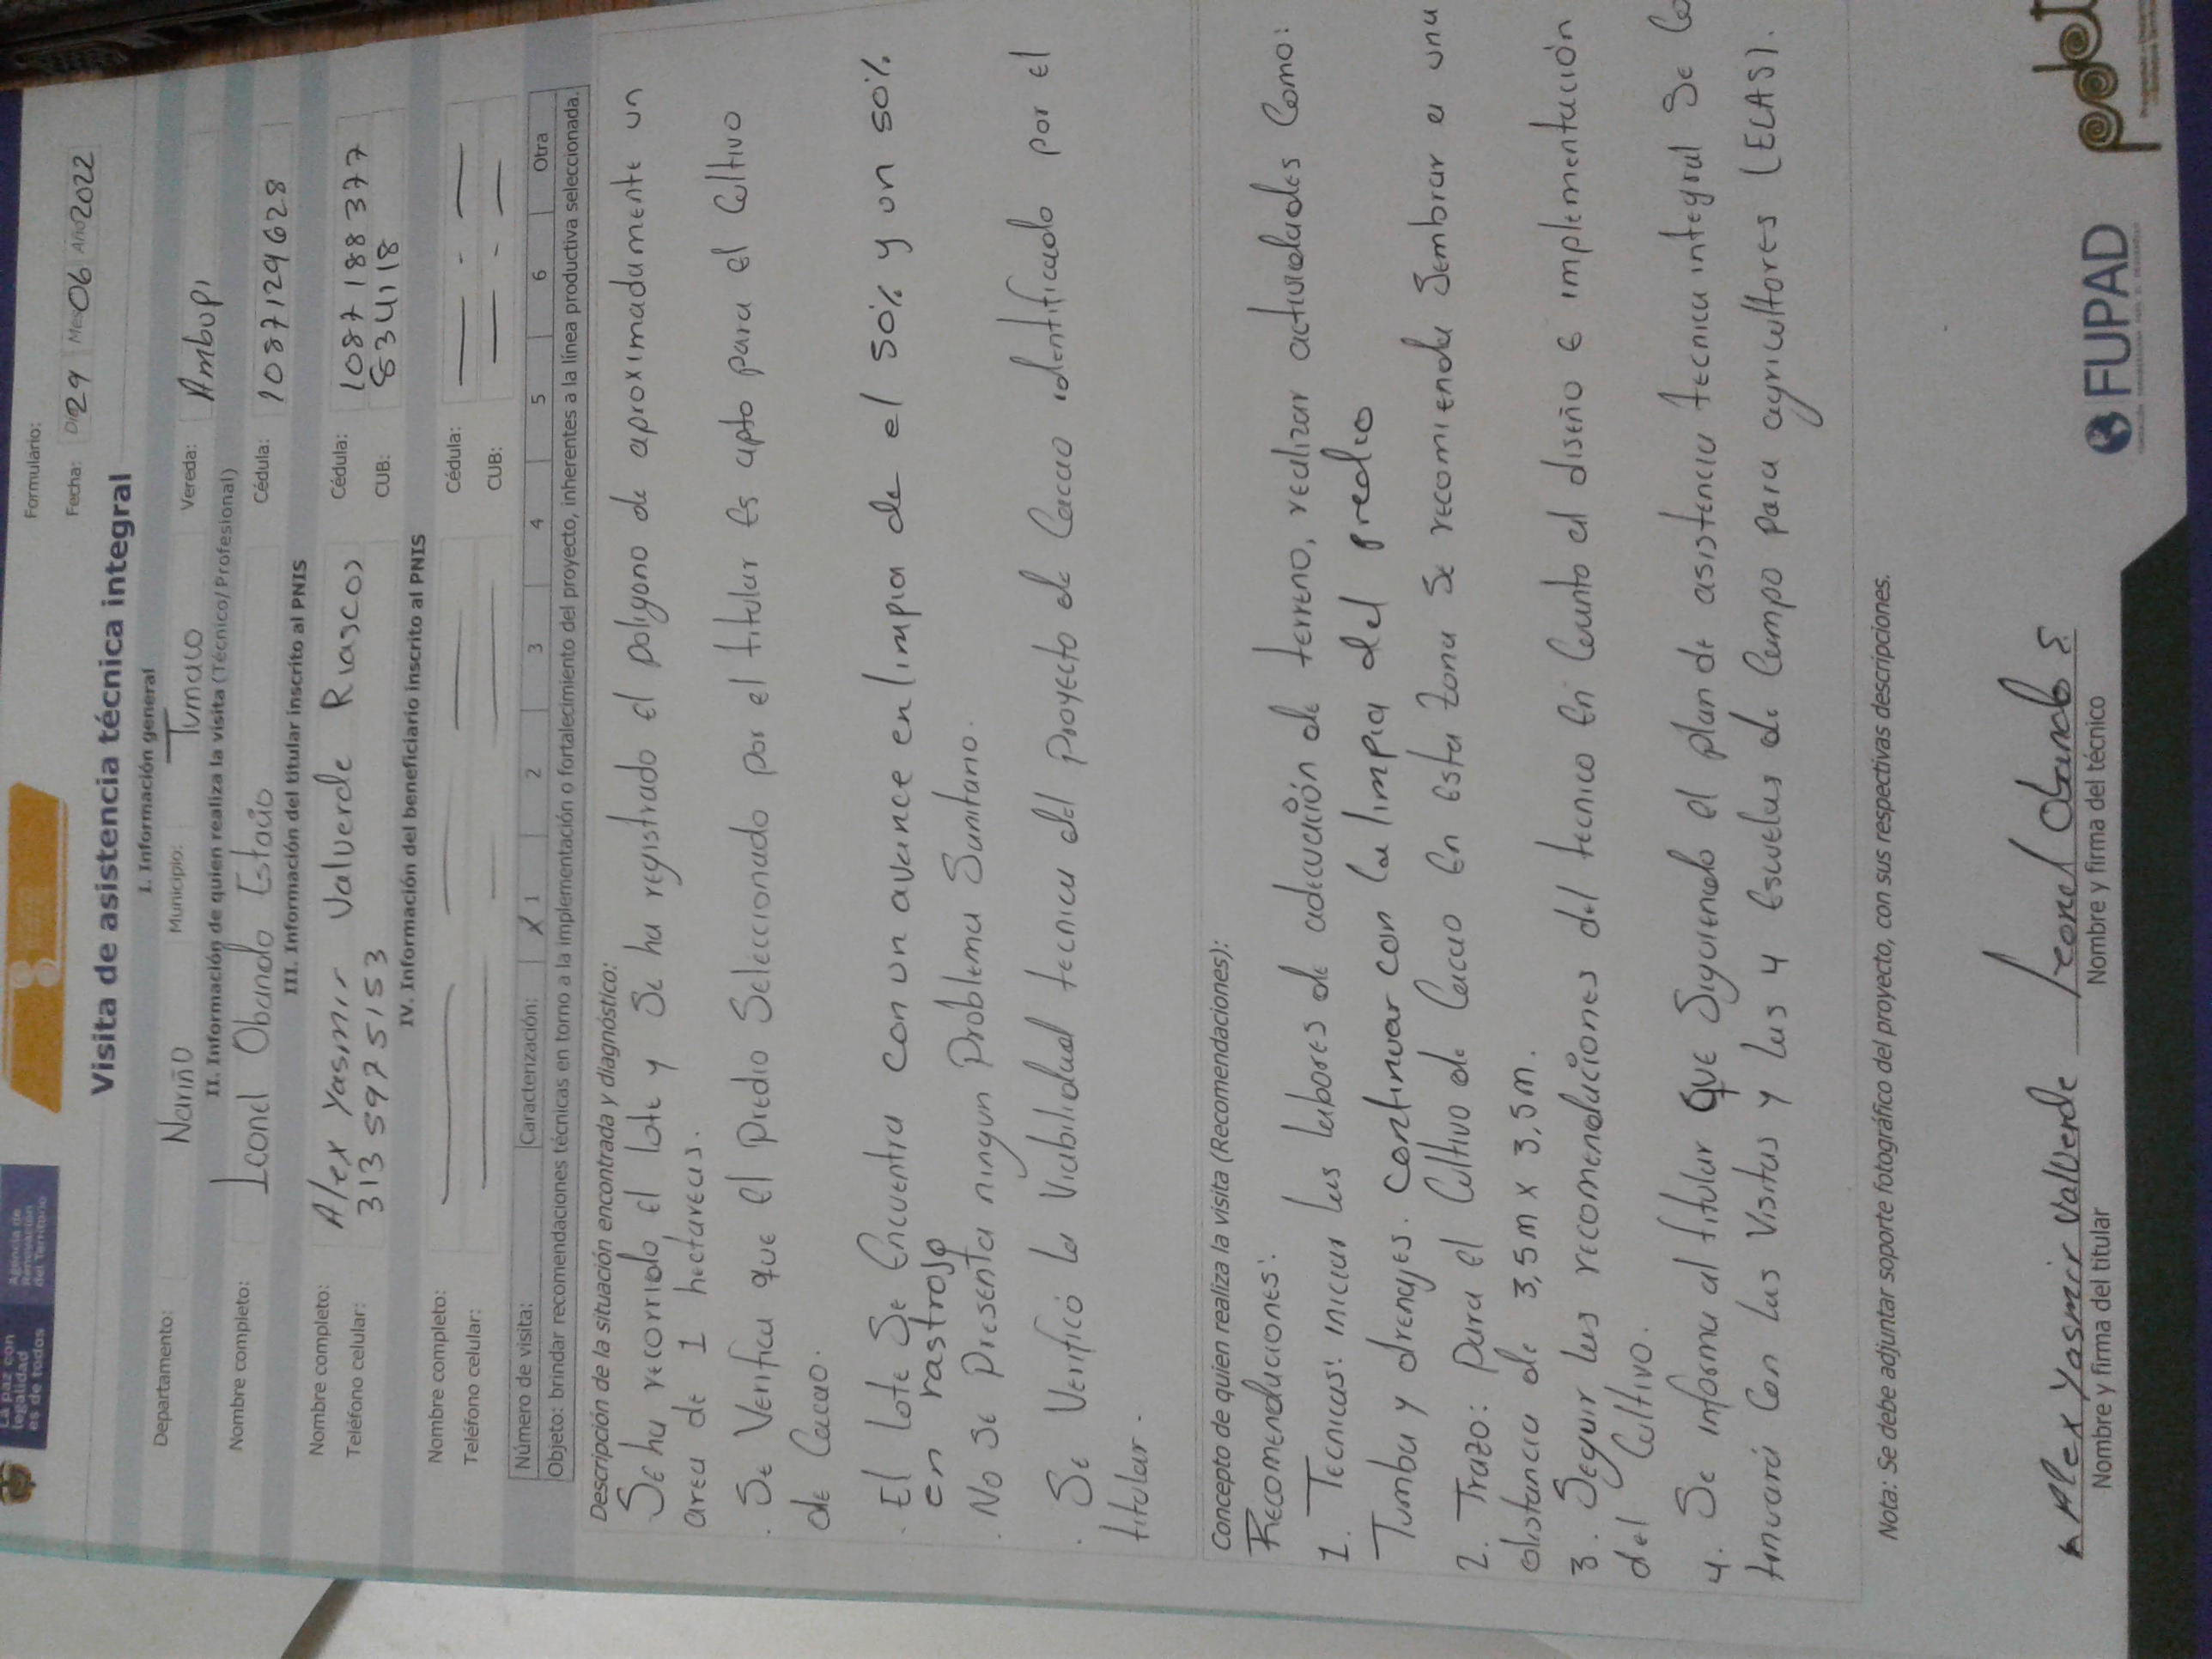 La paz con
legalidad
es de todos
Agencia de
Renovación
del Territorio
Formulario:
Fecha: Día 29 Mes 06 Año 2022
Visita de asistencia técnica integral
I. Información general
Departamento: Nariño Municipio: Tumaco Vereda: Ambupi
II. Información de quien realiza la visita (Técnico/Profesional)
Nombre completo: Leonel Obando Estacio Cédula: 1087129628
III. Información del titular inscrito al PNIS
Nombre completo: Alex Yasmir Valverde Riascos Cédula: 1087188377
Teléfono celular: 313 5975153 CUB: 834118
IV. Información del beneficiario inscrito al PNIS
Nombre completo: Cédula:
Teléfono celular: CUB:
Número de visita: Caracterización: X 1 2 3 4 5 6 Otra
Objeto: brindar recomendaciones técnicas en torno a la implementación o fortalecimiento del proyecto, inherentes a la línea productiva seleccionada.
Descripción de la situación encontrada y diagnóstico:
Se ha recorrido el lote y se ha registrado el poligono de aproximadamente un
area de 1 hectareas.
. Se Verifica que el Predio Seleccionado por el titular es apto para el Cultivo
de Cacao.
. El lote se Encuentra con un avance en limpia de el 50% y un 50%
en rastrojo
. No se Presenta ningun Problema Sanitario.
. Se Verificó la Viabilidad tecnica del proyecto de Cacao identificado por el
titular.
Concepto de quien realiza la visita (Recomendaciones):
Recomendaciones:
1. Tecnicas: iniciar las labores de adecuación de terreno, realizar actividades Como:
Tumba y drenajes. Continuar con la limpia del predio
2. Trazo: Para el Cultivo de Cacao en esta zona se recomienda Sembrar a una
distancia de 3,5m x 3,5m.
3. Seguir las recomendaciones del tecnico en Cuanto al diseño e implementación
del Cultivo.
4. Se informa al titular que Siguiendo el plan de asistencia tecnica integral Se Co
tinuará Con las Visitas y las 4 Escuelas de Campo para agricultores (ECAS).
Nota: Se debe adjuntar soporte fotográfico del proyecto, con sus respectivas descripciones.
Alex Yasmir Valverde Leonel Obando E
Nombre y firma del titular Nombre y firma del técnico
FUPAD pdet